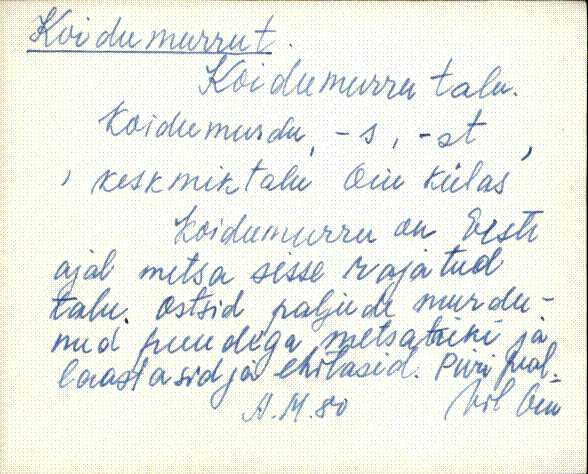 Koidumurrut.
Koidumurru talu.
Koidumurdu, -s, -st,
, keskmiktalu Õiu külas
Koidumurru on Eesti
ajal metsa sisse rajatud
talu. Ostsid paljude murdu-
nud puudega metsatüki ja
laastasid ja ehitasid. Piiri
A.M.80 Vil Õiu